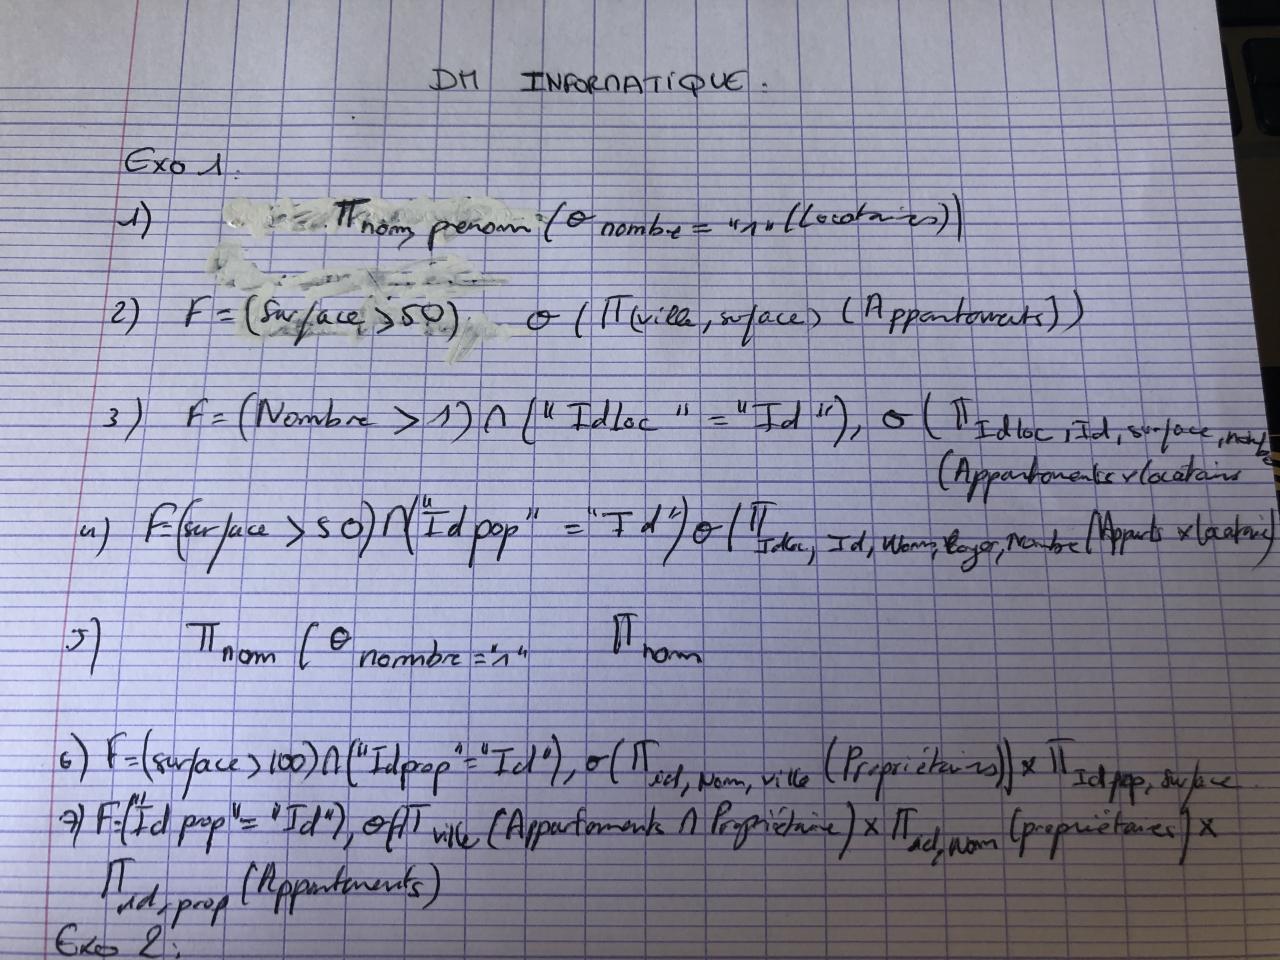 DM INFORMATIQUE.
Exo 1.
1) Π nom, prenom (σ nombre = "1" (Locataires))
2) F = (Surface > 50) σ (Π(ville, surface) (Appartements))
3) F = (Nombre > 1) ∩ ("Idloc" = "Id"), σ (Π Idloc, Id, surface, nombre
(Appartements x locataires
4) F = (surface > 50) ∩ ("Idpop" = "Id") σ (Π Idloc, Id, Nom, loyer, Nombre (Apparts x locataire)
5) Π nom (σ nombre = "1" Π nom
6) F = (surface > 100) ∩ ("Idprop" = "Id"), σ (Π id, Nom, ville (Propriétaires)) x Π Idpop, surface
7) F = ("Id prop" = "Id"), σ (Π ville (Appartements ∩ Propriétaire) x Π id, Nom (propriétaires) x
Π id, prop (Appartements)
Exo 2: